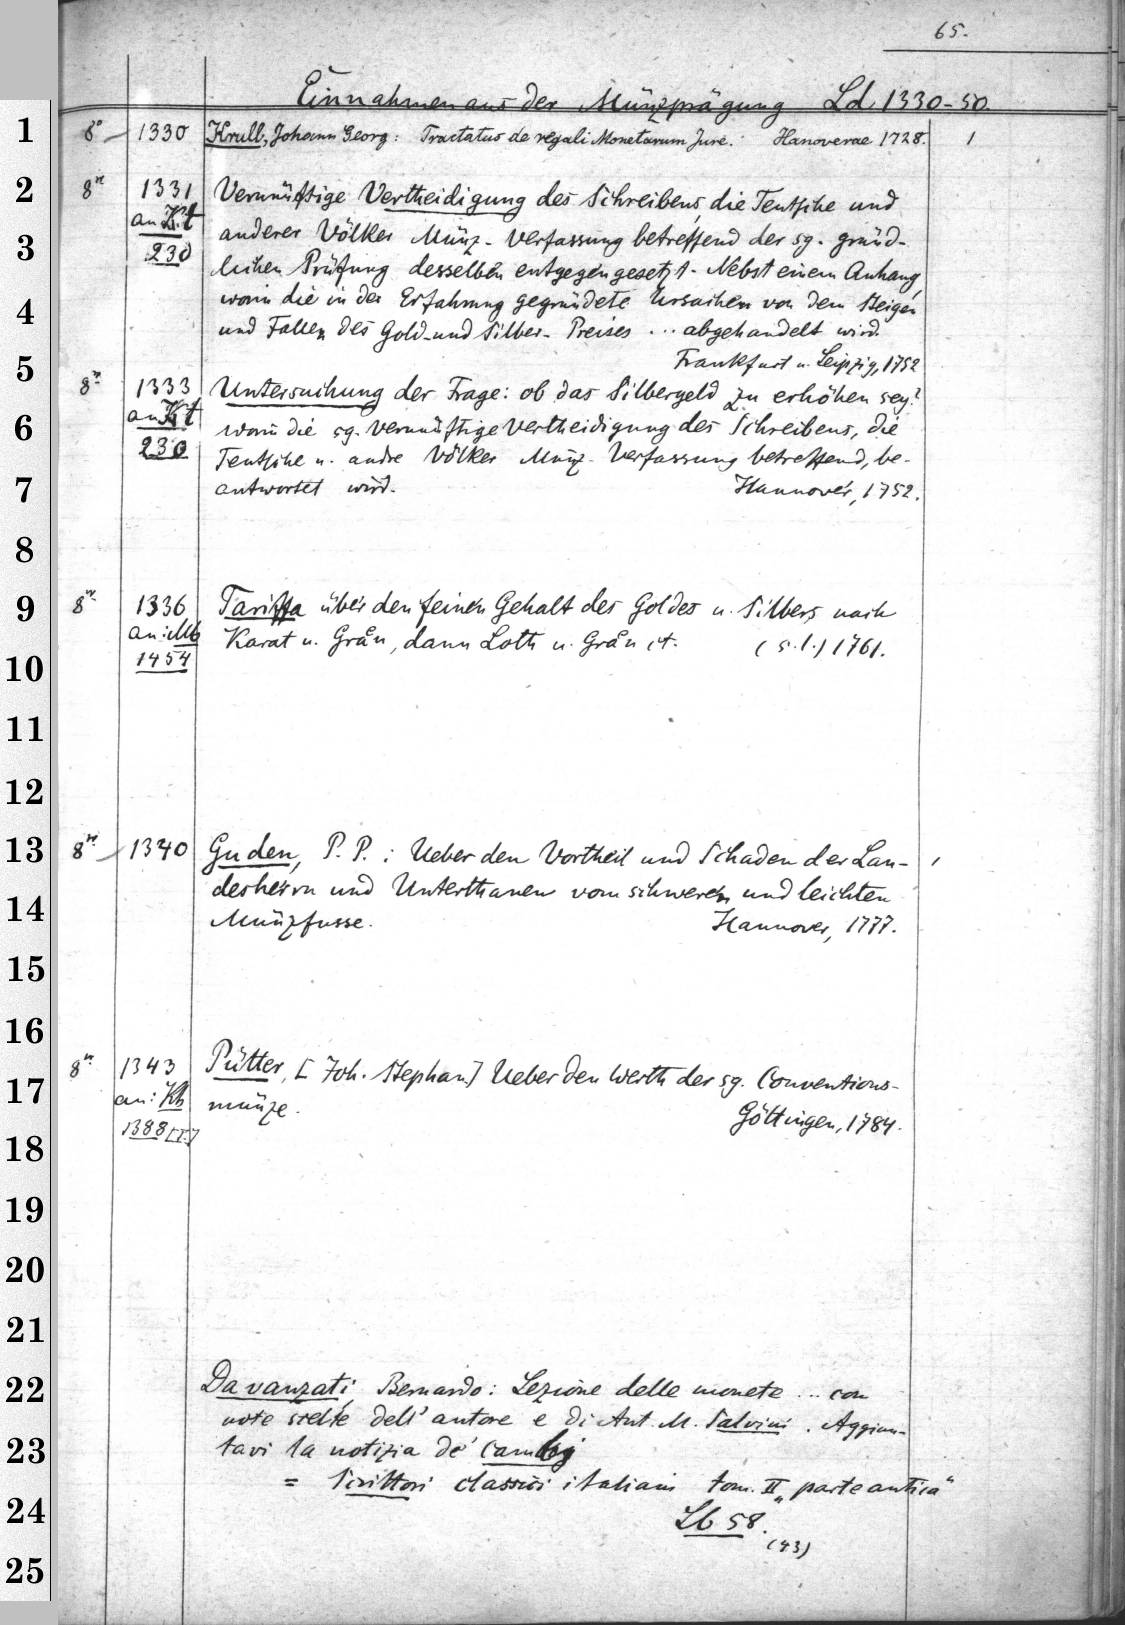 65.
Einnahmen aus der Münzprägung Ld 1330-50
1 8° 1330 Krull, Johann Georg: Tractatus de regali Monetarum Jure. Hanoverae 1728. 1
2 8° 1331 Vernünftige Vertheidigung des Schreibens, die Teutsche und
an Kt
3 230 anderer Völker Münz-Verfassung betreffend der sg. gründ-
lichen Prüfung desselben entgegengesetzt. Nebst einem Anhang,
4 worin die in der Erfahrung gegründete Ursachen von dem Steigen
und Fallen des Gold- und Silber-Preises ... abgehandelt wird.
5 Frankfurt u. Leipzig, 1752
8° 1333 Untersuchung der Frage: ob das Silbergeld zu erhöhen sey?
an Kt
6 230 worin die sg. Vernünftige Vertheidigung des Schreibens, die
Teutsche u. andre Völker Münz-Verfassung betreffend, be-
7 antwortet wird. Hannover, 1752.
8
9 8° 1336 Tariffa über den feinen Gehalt des Goldes u. Silbers nach
an: Mb Karat u. Grän, dann Loth u. Grän ct. (s.l.) 1761.
10 1454
11
12
13 8° 1340 Guden, P. P.: Ueber den Vortheil und Schaden der Lan-
14 desherrn und Unterthanen vom schweren und leichten
Münzfusse. Hannover, 1777.
15
16
8° 1343 Pütter, [Joh. Stephan] Ueber den Werth der sg. Conventions-
17 an: Kb münze. Göttingen, 1784.
1388 [I.]
18
19
20
21
22 Davanzati, Bernardo: Lezione delle monete ... con
note scelte dell' autore e di Ant. M. Salvini. Aggiun-
23 tavi la notizia de' cambj
= Scrittori classici italiani tom. II „parte antica“
24 Lb 58.
(43)
25